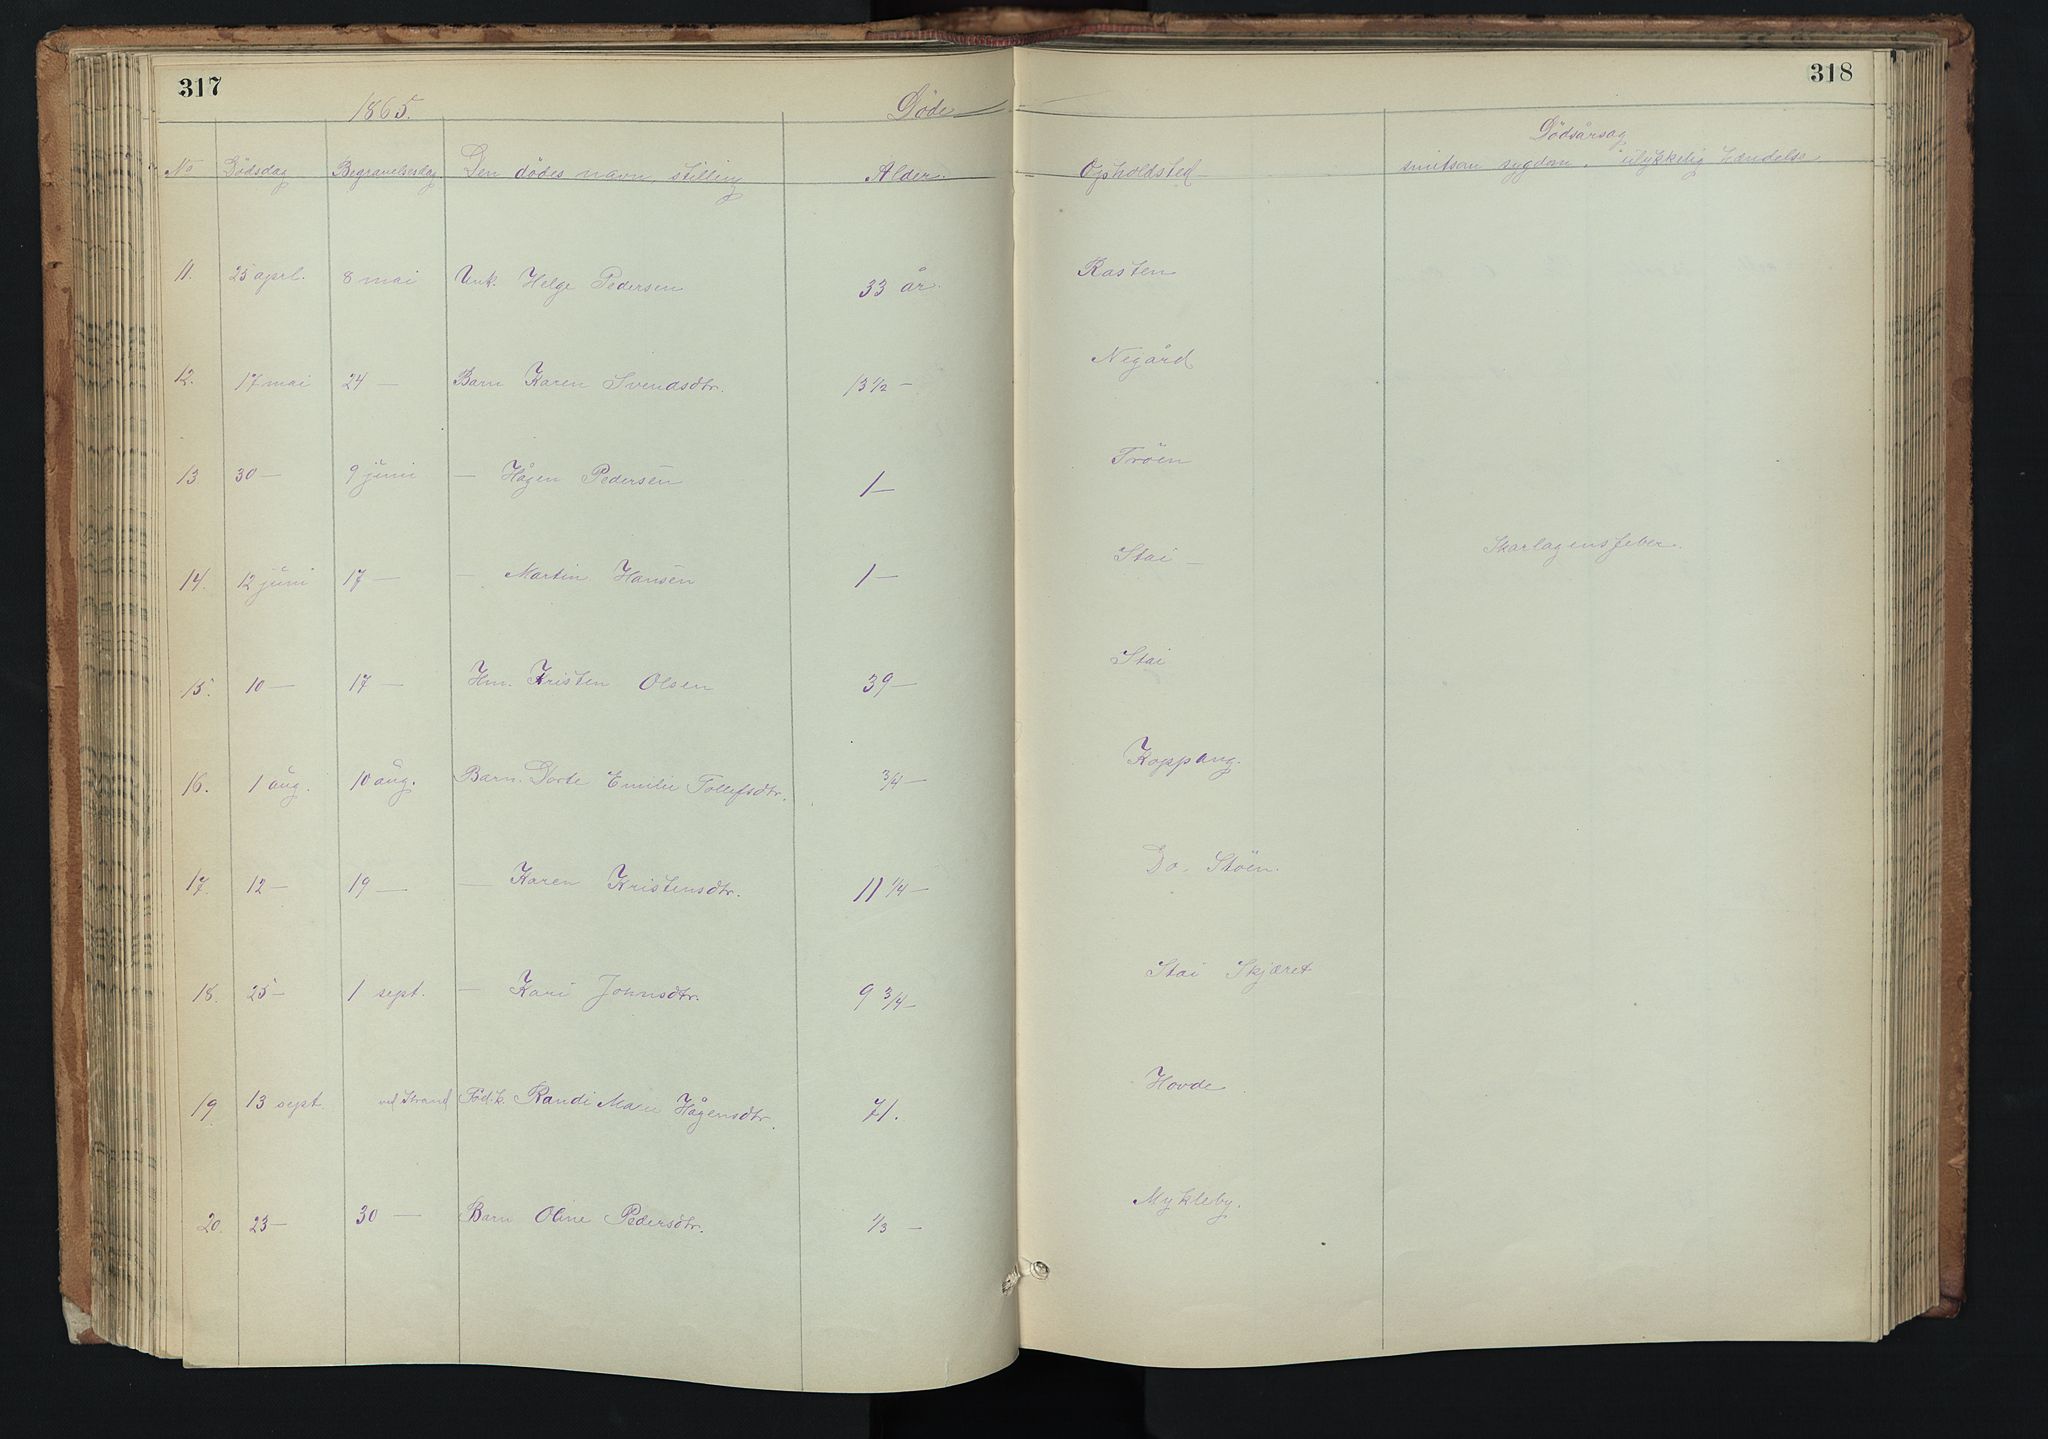 317
318
1865. Döde
No Dödsdag Begravelsesdag Den dödes navn, stilling Alder. Opholdsted Dödsårsag
smitsom sygdom. ulykkelig hændelse
11. 25 aprl. 8 mai Unk. Helge Pedersen 33 år. Rasten
12. 17 mai 24 — Barn Karen Svendsdtr. 13 1/2 — Negård
13. 30 — 9 juni — Hågen Pedersen 1 — Tröen
14. 12 juni 17 — — Martin Hansen 1 — Stai — Skarlagensfeber.
15. 10 — 17 — Hm. Kristen Olsen 39 — Stai
16. 1 aug. 10 aug. Barn. Dorte Emilie Tollefsdtr. 3/4 — Koppang.
17. 12 — 19 — — Karen Kristensdtr. 11 1/4 — Do. Stöen.
18. 25 — 1 sept. — Kari Johnsdtr. 9 3/4 — Stai Skjæret
19 13 sept. ved Strand Föd.k. Randi Marie Hågensdtr. 71. Hovde
20. 23 — 30 — Barn Oline Pedersdtr. 1/3 — Mykleby.